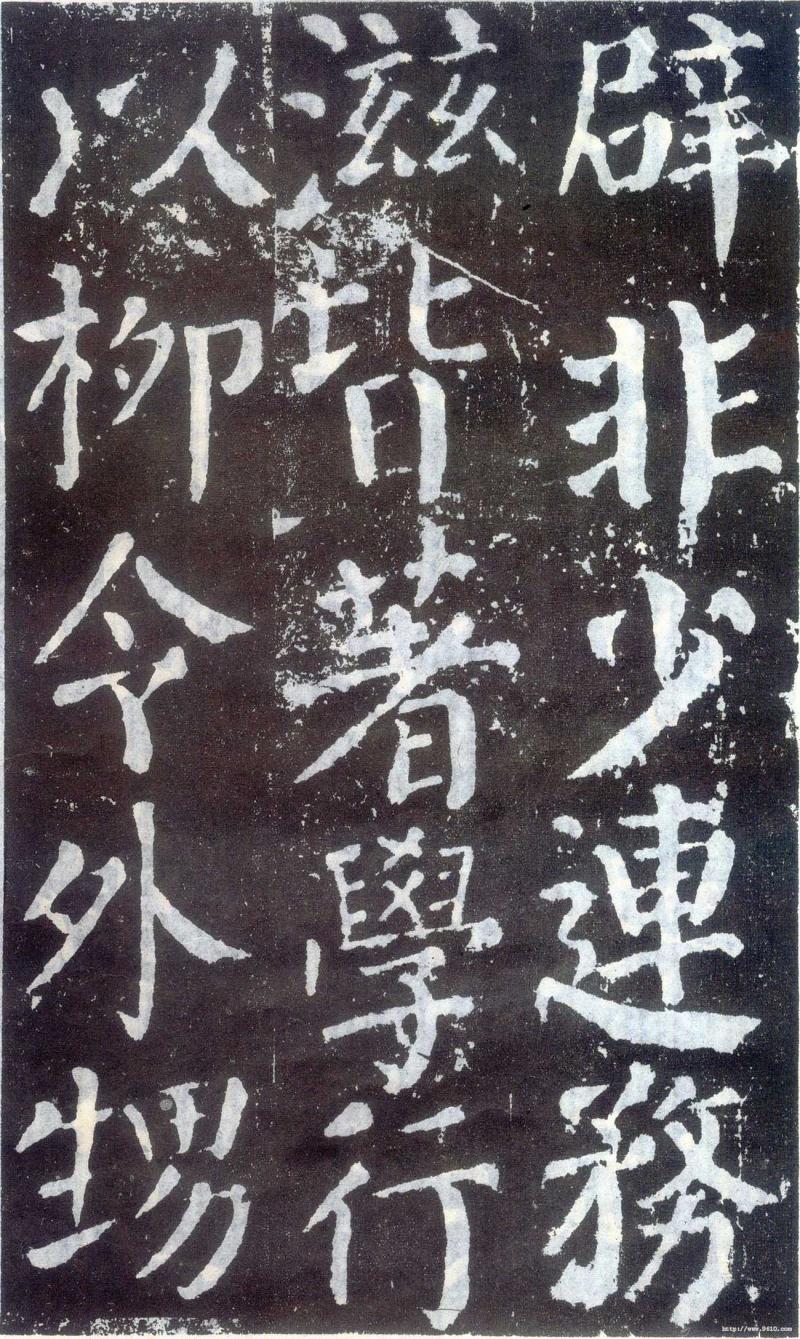 辟非少連務
滋皆著學行
以柳令外甥
http://www.9610.com